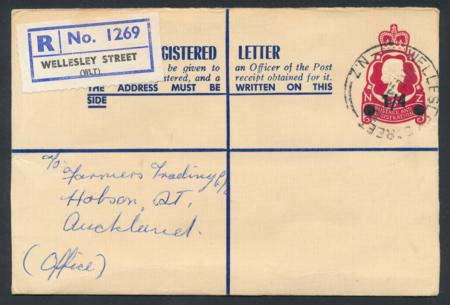 R No. 1269
WELLESLEY STREET
(WLT)
GISTERED LETTER
be given to an Officer of the Post
tered, and a receipt obtained for it.
THE ADDRESS MUST BE WRITTEN ON THIS
SIDE
N.Z. WELLESL STREET
1/4
POSTAGE AND
REGISTRATION
N Z
c/o Farmers Trading Co
Hobson St,
Auckland.
(Office)